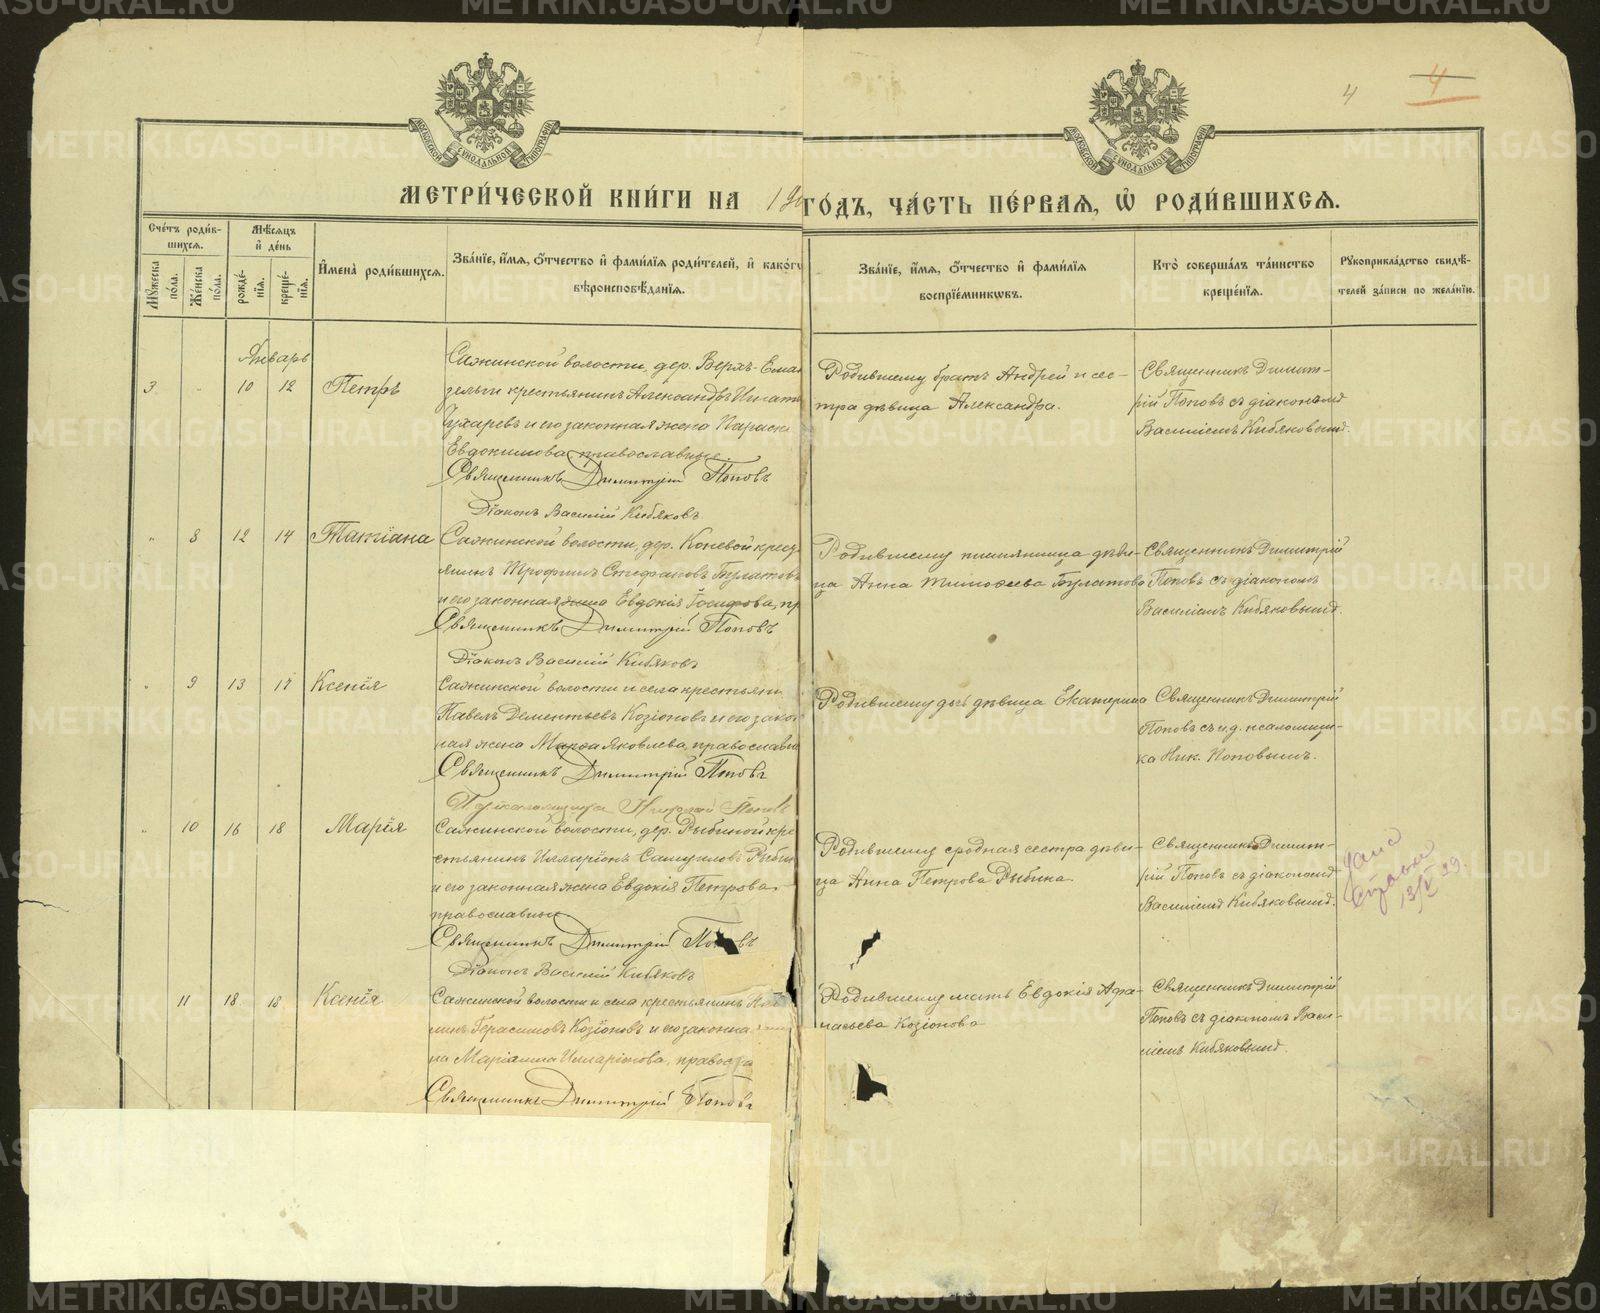 4
4
МОСКОВСКОЙ СУНОДАЛЬНОЙ ТИПОГРАФІИ
МОСКОВСКОЙ СУНОДАЛЬНОЙ ТИПОГРАФІИ
МЕТРИ́ЧЕСКОЙ КНИ́ГИ НА 190 ГО́ДЪ, ЧА́СТЬ ПЕ́РВАЯ, Ѡ РОДИ́ВШИХСЯ.
Сче́тъ роди́вшихся.
Мѣ́сяцъ и де́нь
Мꙋ́жеска по́ла.
Же́нска по́ла.
рожде́нїѧ.
креще́нїѧ.
И҆мена̀ роди́вшихсѧ.
Зва́нїе, и҆́мѧ, ѻ҆́тчество и҆ фами́лїѧ роди́телей, и҆ како́гѡ
вѣроисповѣ́данїѧ.
Зва́нїе, и҆́мѧ, ѻ҆́тчество и҆ фами́лїѧ
воспрїе́мникѡвъ.
Кто̀ соверша́лъ та́инство
креще́нїѧ.
Рꙋкоприкла́дство свидѣ́-
телей за́писи по жела́нїю.
Январь
3 " 10 12 Петръ
Сажинской волости, дер. Верхъ-
крестьянинъ Александръ
и его законная жена
Евдокимова, православные.
Священникъ Димитрій Поповъ
Діаконъ Василій Кибяковъ
Родившему братъ Андрей и сес-
тра дѣвица Александра.
Священникъ Димит-
рій Поповъ съ діакономъ
Василіемъ Кибяковымъ.
" 8 12 14 Татіана
Сажинской волости, дер. Коневой
Трофимъ Стефановъ Булатовъ
и его законная жена Евдокія Іосифова, пр
Священникъ Димитрій Поповъ
Діаконъ Василій Кибяковъ
Родившему племянница дѣви-
ца Анна Тимофеева Булатова
Священникъ Димитрій
Поповъ съ діакономъ
Василіемъ Кибяковымъ.
" 9 13 17 Ксенія
Сажинской волости и села крестьянин
Павелъ Дементьевъ Козіоновъ и его закон
ная жена Марѳа Яковлева, православны
Священникъ Димитрій Поповъ
Николай Поповъ
Родившему дочь дѣвица Екатерина
Священникъ Димитрій
Поповъ съ и.д. псаломщи-
ка Ник. Поповымъ.
" 10 16 18 Марія
Сажинской волости, дер. Рыбиной кре
стьянинъ Илларіонъ Самуиловъ Рыбин
и его законная жена Евдокія Петрова,
православные
Священникъ Димитрій Поповъ
Діаконъ Василій Кибяковъ
Родившему сродная сестра дѣви-
ца Анна Петрова Рыбина.
Священникъ Димит-
рій Поповъ съ діакономъ
Василіемъ Кибяковымъ.
11 18 18 Ксенія
Сажинской волости и села крестьянинъ
Герасимовъ Козіоновъ и его законна
Маріамна Илларіонова, правосла
Священникъ Димитрій Поповъ
Родившему мать Евдокія Афа-
насьева Козіонова
Священникъ Димитрій
Поповъ съ діакономъ Васи-
ліемъ Кибяковымъ.
METRIKI.GASO-URAL.RU